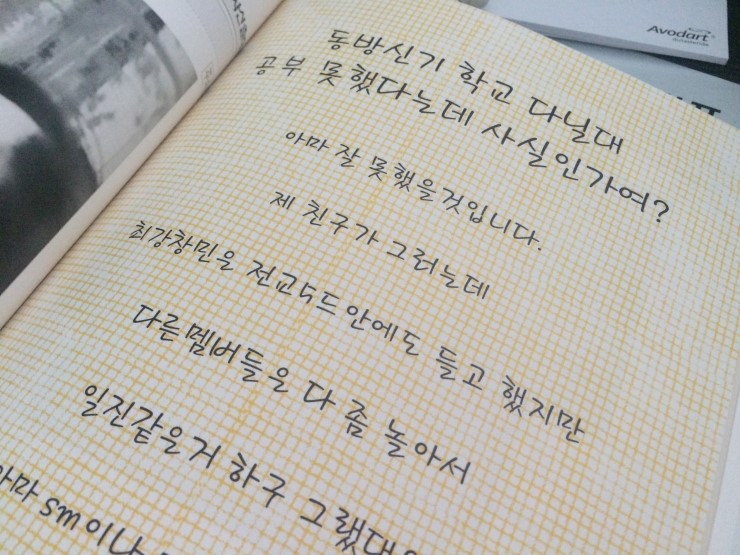 Avodart
동방신기 학교 다닐대
공부 못했다는데 사실인가여?
아마 잘 못했을것입니다.
제 친구가 그러는데
최강창민은 전교5드안에도 들고 했지만
다른멤버들은 다 좀 놀아서
일진같은거 하구 그랬대
아마 sm이나